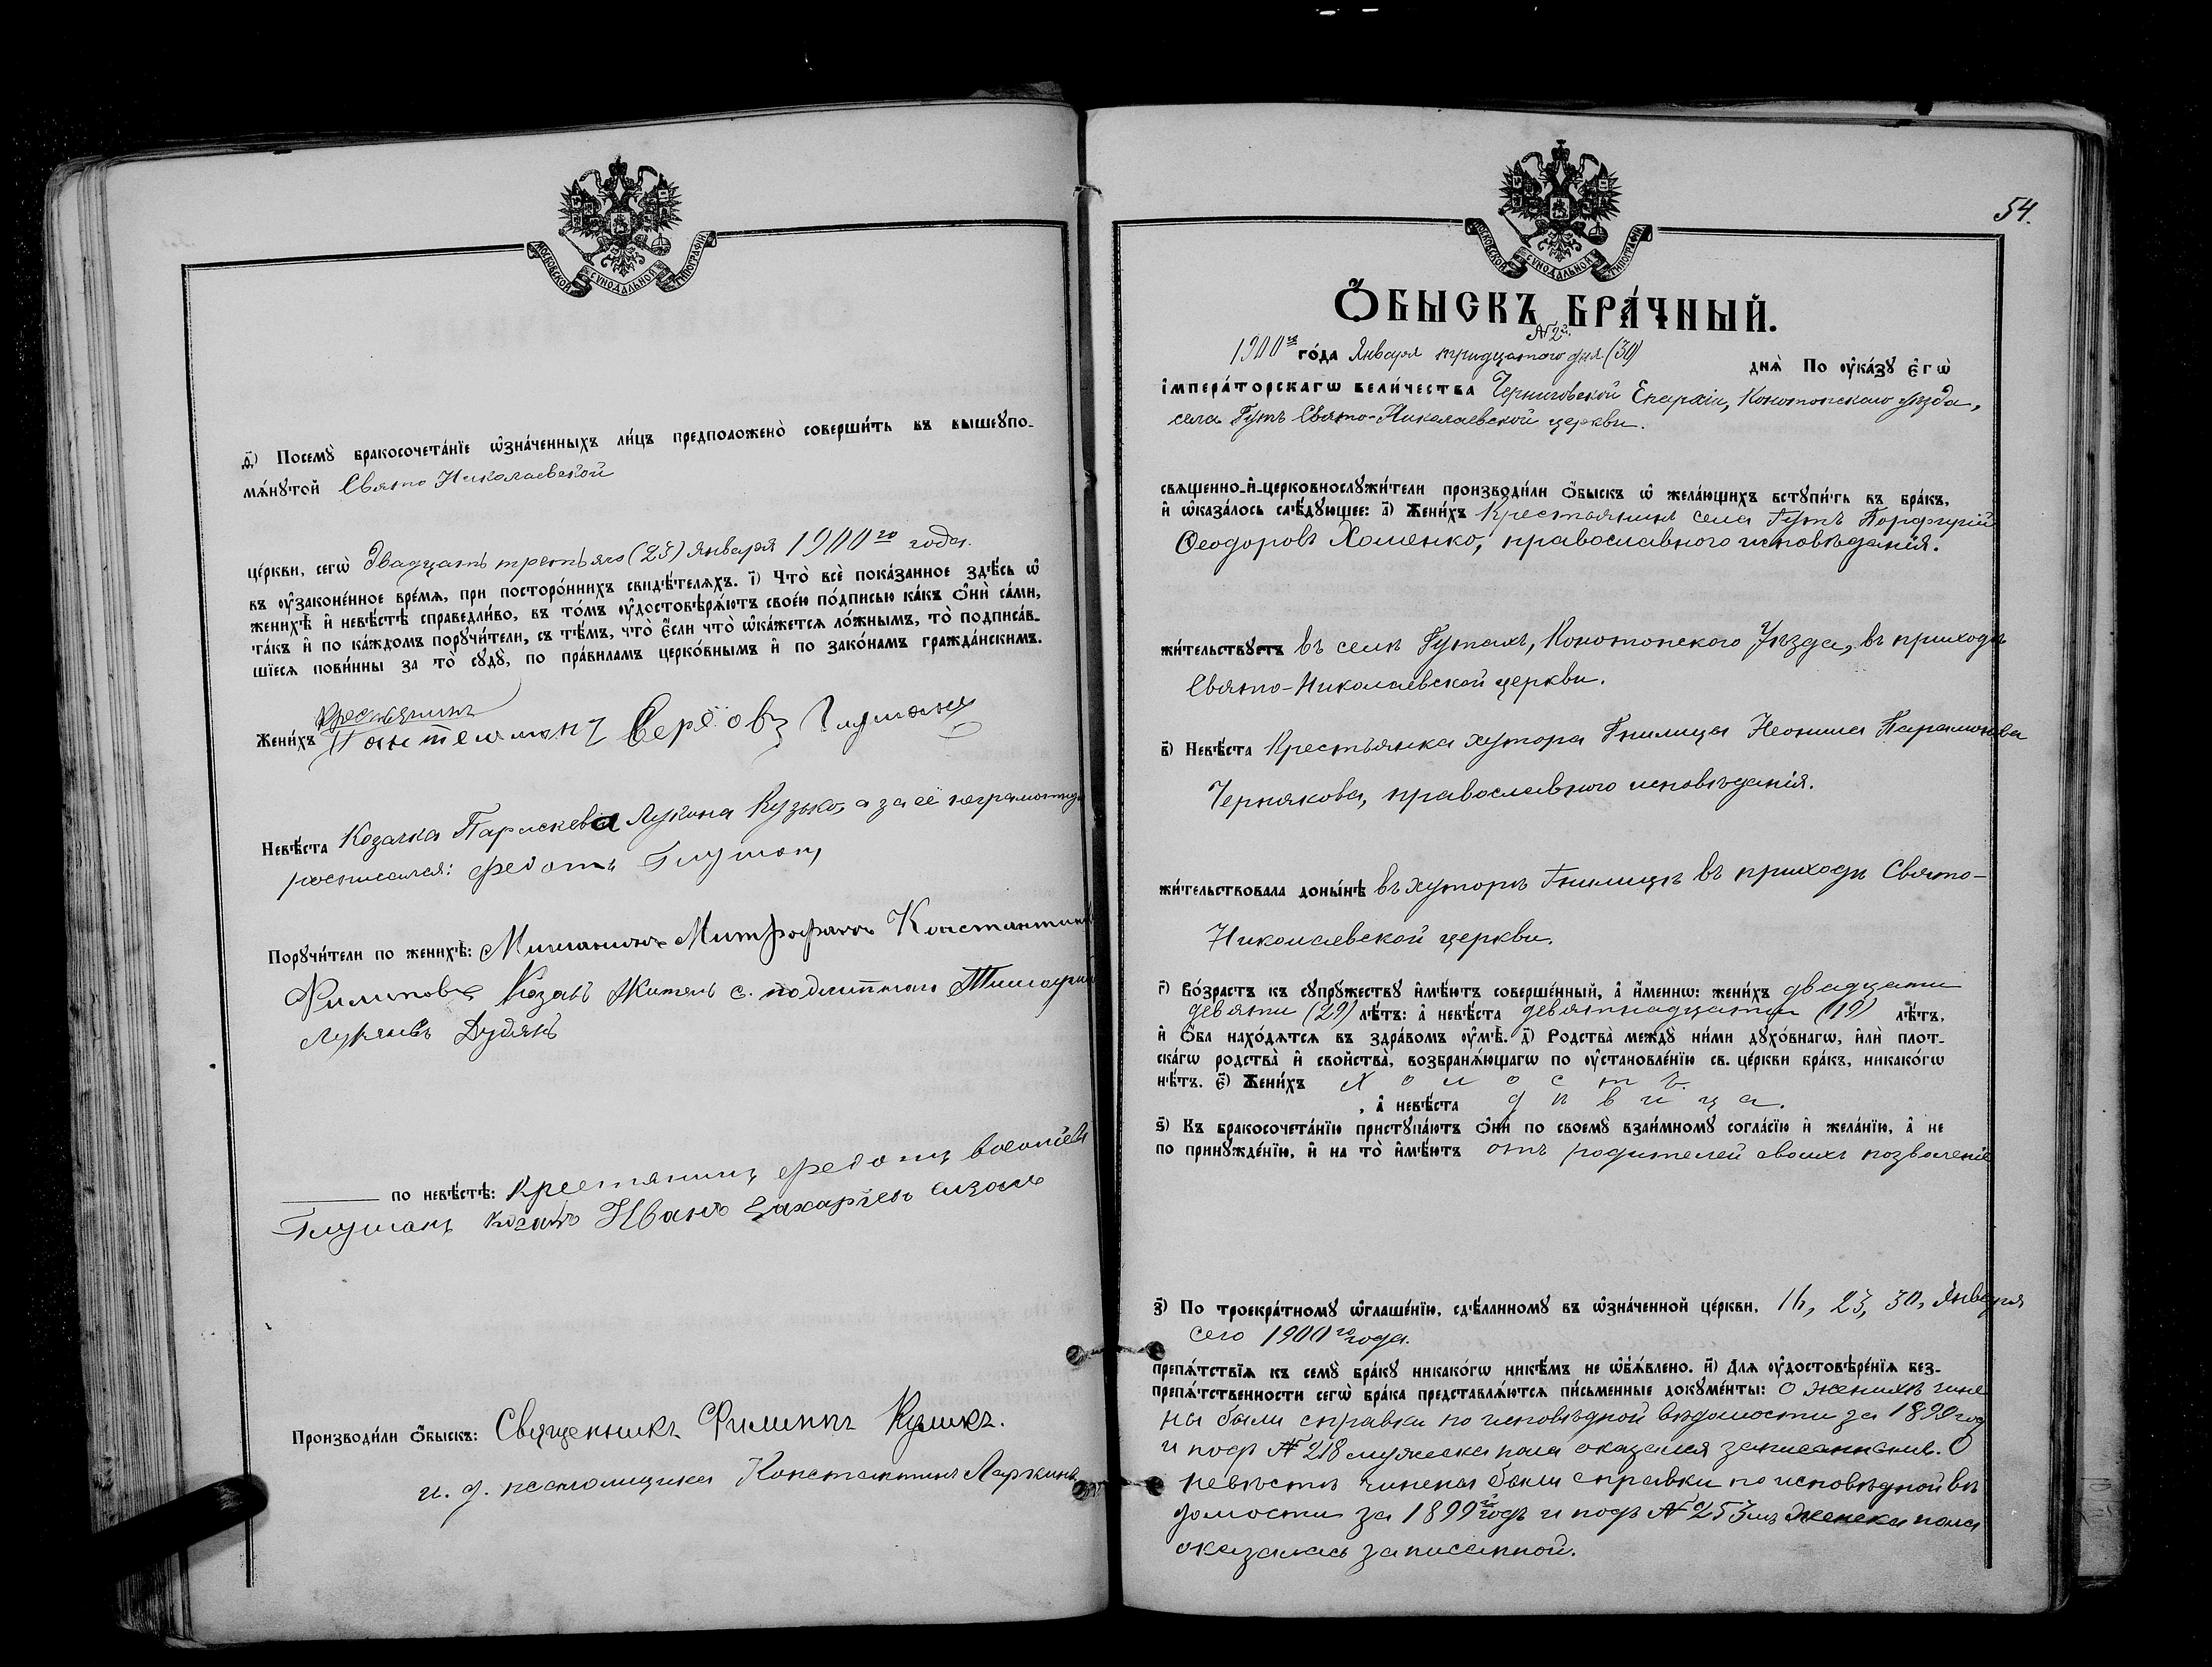 МОСКОВСКОЙ СѴНОДАЛЬНОЙ ТИПОГРАФІИ
ѳ҃) Посемꙋ̀ бракосочета́нїе ѡ҆зна́ченныхъ ли́цъ предположено̀ соверши́ть въ вышеꙋпо-
мѧ́нꙋтой Свято Николаевской
це́ркви, сегѡ̀ Двадцать третьяго (23) Января 1900го года.
въ ᲂу҆законе́нное вре́мѧ, при посторо́ннихъ свидѣ́телѧхъ. і҃) Что̀ всѐ пока́занное здѣ́сь ѡ҆
женихѣ̀ и҆ невѣ́стѣ справедли́во, въ то́мъ ᲂу҆достовѣрѧ́ютъ свое́ю по́дписью ка́къ ѻ҆нѝ са́ми,
та́къ и҆ по ка́ждомъ порꙋчи́тели, съ тѣ́мъ, что̀ є҆́сли что̀ ѡ҆ка́жетсѧ ло́жнымъ, то̀ подписа́в-
шїесѧ пови́нны за то̀ сꙋдꙋ̀, по пра́виламъ церко́внымъ и҆ по зако́намъ гражда́нскимъ.
Крестьянинъ
Жени́хъ
Невѣ́ста Козачка Параскева Лукина Кузько, а за её неграмотную
росписался: Федотъ Глушанъ
Порꙋчи́тели по женихѣ̀: Мѣщанинъ Митрофанъ Константиновъ
Филиповъ Козакъ Житель с.
по невѣ́стѣ: Крестянинъ Федотъ
Козакъ Иванъ Захаріевъ
Производи́ли ѻ҆́быскъ: Священникъ Филиппъ
и. д. псаломщика Константинъ Ларкинъ
54.
МОСКОВСКОЙ СѴНОДАЛЬНОЙ ТИПОГРАФІИ
Ѻ҆́БЫСКЪ БРА́ЧНЫЙ.
№ 2й.
1900го го́да Января тридцатого дня (30) днѧ̀ По ᲂу҆ка́зꙋ є҆гѡ̀
і҆мпера́торскагѡ вели́чества Черниговской Епархіи, Конотопскаго уѣзда,
села Гутъ Свято-Николаевской церкви.
свѧщенно-и҆-церковнослꙋжи́тели производи́ли ѻ҆́быскъ ѡ҆ жела́ющихъ встꙋпи́ть въ бра́къ,
и҆ ѡ҆каза́лось слѣ́дꙋющее: а҃) Жени́хъ Крестьянинъ села Гутъ Порфирій
Ѳеодоровъ Хоменко, православного исповѣданія.
жи́тельствꙋетъ въ селѣ Гутахъ, Конотопского Уѣзда, въ приходѣ
Свято-Николаевской церкви.
в҃) Невѣ́ста Крестьянка хутора Гнилицы Неонила Парамонова
Чернякова, православного исповѣданія.
жи́тельствовала доны́нѣ въ хуторѣ Гнилицѣ въ приходѣ Свято-
Николаевской церкви.
г҃) Во́зрастъ къ сꙋпрꙋ́жествꙋ и҆мѣ́ютъ соверше́нный, а҆ и҆́меннѡ: жени́хъ двадцати
девяти (29) лѣ́тъ: а҆ невѣ́ста девятнадцати (19) лѣ́тъ,
и҆ ѻ҆́ба нахо́дѧтсѧ въ здра́вомъ ᲂу҆мѣ̀. д҃) Родства̀ междꙋ̀ ни́ми дꙋхо́внагѡ, и҆лѝ плот-
ска́гѡ родства̀ и҆ свойства̀, возбранѧ́ющагѡ по ᲂу҆становле́нїю св. це́ркви бра́къ, никако́гѡ
нѣ́тъ. є҃) Жени́хъ холостъ.
, а҆ невѣ́ста дѣвица.
ѕ҃) Къ бракосочета́нїю пристꙋпа́ютъ ѻ҆нѝ по своемꙋ̀ взаи́мномꙋ согла́сїю и҆ жела́нїю, а҆ не
по принꙋжде́нїю, и҆ на то̀ и҆мѣ́ютъ отъ родителей своихъ позволеніе
з҃) По троекра́тномꙋ ѡ҆глаше́нїю, сдѣ́ланномꙋ въ ѡ҆зна́ченной це́ркви, 16, 23, 30, Января
сего 1900го года.
препѧ́тствїѧ къ семꙋ̀ бра́кꙋ никако́гѡ никѣ́мъ не ѡ҆б̾ѧ́влено. и҃) Длѧ ᲂу҆достовѣре́нїѧ без-
препѧ́тственности сегѡ̀ бра́ка представлѧ́ютсѧ пи́сьменные докꙋме́нты: О женихѣ чине
ны были справки по исповѣдной вѣдомости за 1899 год
и подъ № 218 мужеска пола оказался записаннымъ. О
невѣстѣ чинены были справки по исповѣдной вѣ
домости за 1899й годъ и подъ № 253мъ женска пола
оказалась записанной.